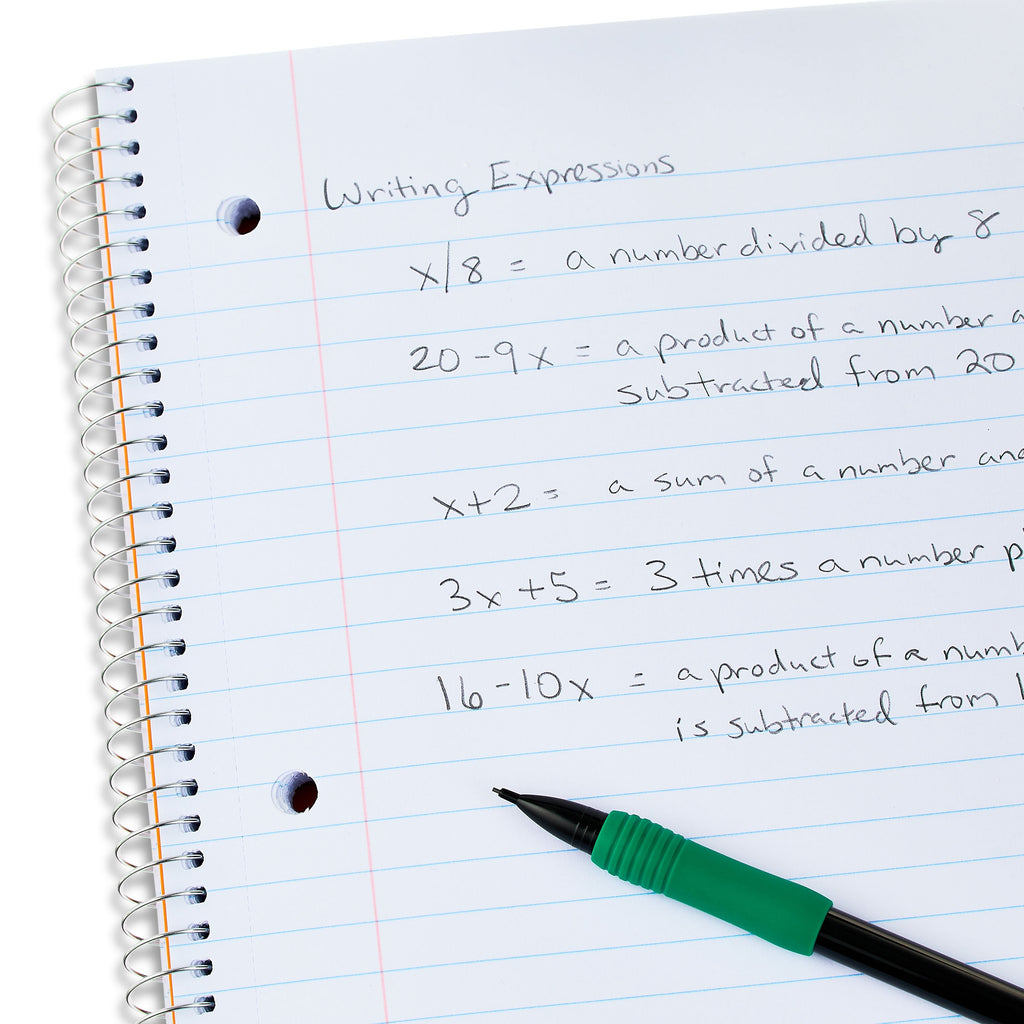 Writing Expressions
x/8 = a number divided by 8
20-9x = a product of a number
subtracted from 20
x+2 = a sum of a number and
3x+5 = 3 times a number
16-10x = a product of a
is subtracted from